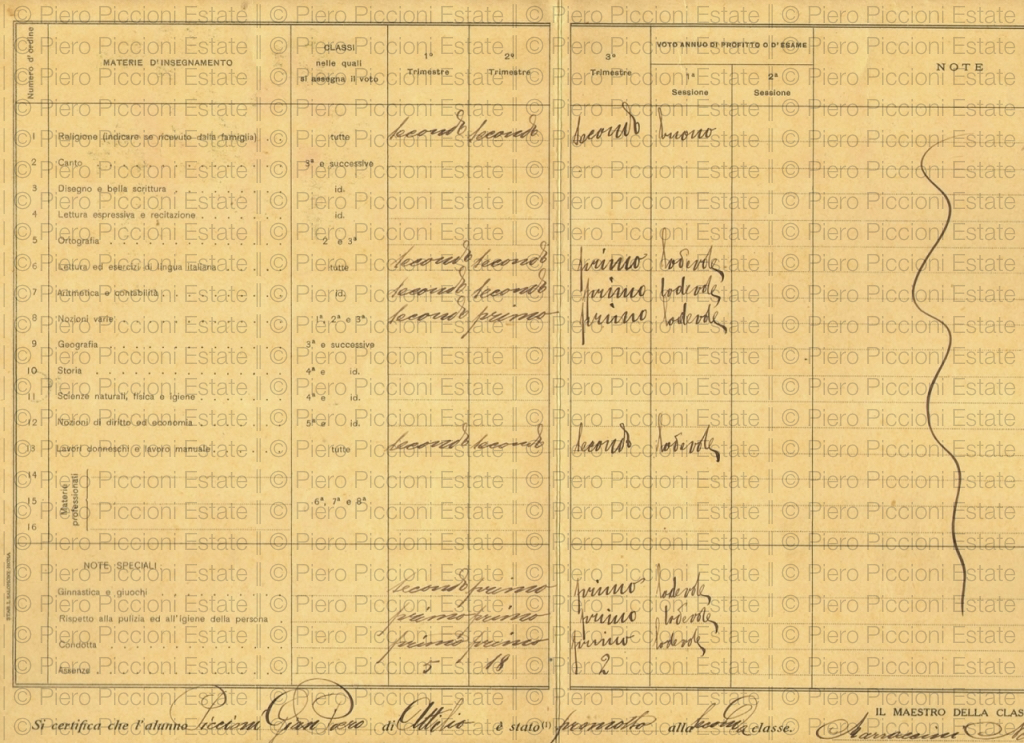 Numero d'ordine
MATERIE D'INSEGNAMENTO
CLASSI
nelle quali
si assegna il voto
1º
Trimestre
2º
Trimestre
3º
Trimestre
VOTO ANNUO DI PROFITTO O D'ESAME
1ª
Sessione
2ª
Sessione
NOTE
1 Religione (indicare se ricevuto dalla famiglia) . tutte secondo secondo secondo buono
2 Canto 3ª e successive
3 Disegno e bella scrittura id.
4 Lettura espressiva e recitazione id.
5 Ortografia 2 e 3ª
6 Lettura ed esercizi di lingua italiana tutte secondo secondo primo lodevole
7 Aritmetica e contabilità id. secondo secondo primo lodevole
8 Nozioni varie 1ª, 2ª e 3ª secondo primo primo lodevole
9 Geografia 3ª e successive
10 Storia 4ª e id.
11 Scienze naturali, fisica e igiene 4ª e id.
12 Nozioni di diritto ed economia 5ª e id.
13 Lavori donneschi e lavoro manuale tutte secondo secondo secondo lodevole
14
15 Materie professionali 6ª, 7ª e 8ª
16
NOTE SPECIALI
Ginnastica e giuochi secondo primo primo lodevole
Rispetto alla pulizia ed all'igiene della persona primo primo primo lodevole
Condotta primo primo primo lodevole
Assenze 5 18 2
Si certifica che l'alunno Piccioni Gian Piero di Attilio è stato (1) promosso alla seconda classe.
IL MAESTRO DELLA CLAS
© Piero Piccioni Estate